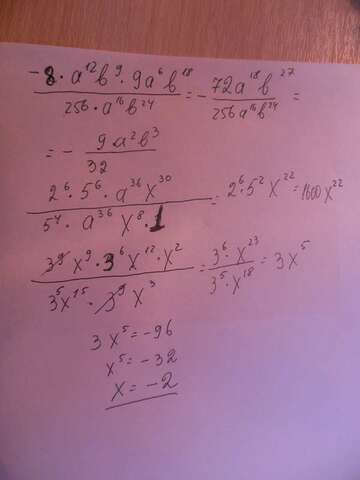 -8·a¹²b⁹·9a⁶b¹⁸ / 256·a¹⁶b²⁴ = - 72a¹⁸b²⁷ / 256a¹⁶b²⁴ =
= - 9a²b³ / 32
2⁶·5⁶·a³⁶x³⁰ / 5⁴·a³⁶x⁸·1 = 2⁶·5²x²²=1600x²²
3⁹x⁹·3⁶x¹²·x² / 3⁵x¹⁵·3⁹x³ = 3⁶·x²³ / 3⁵·x¹⁸ = 3x⁵
3x⁵=-96
x⁵=-32
x=-2